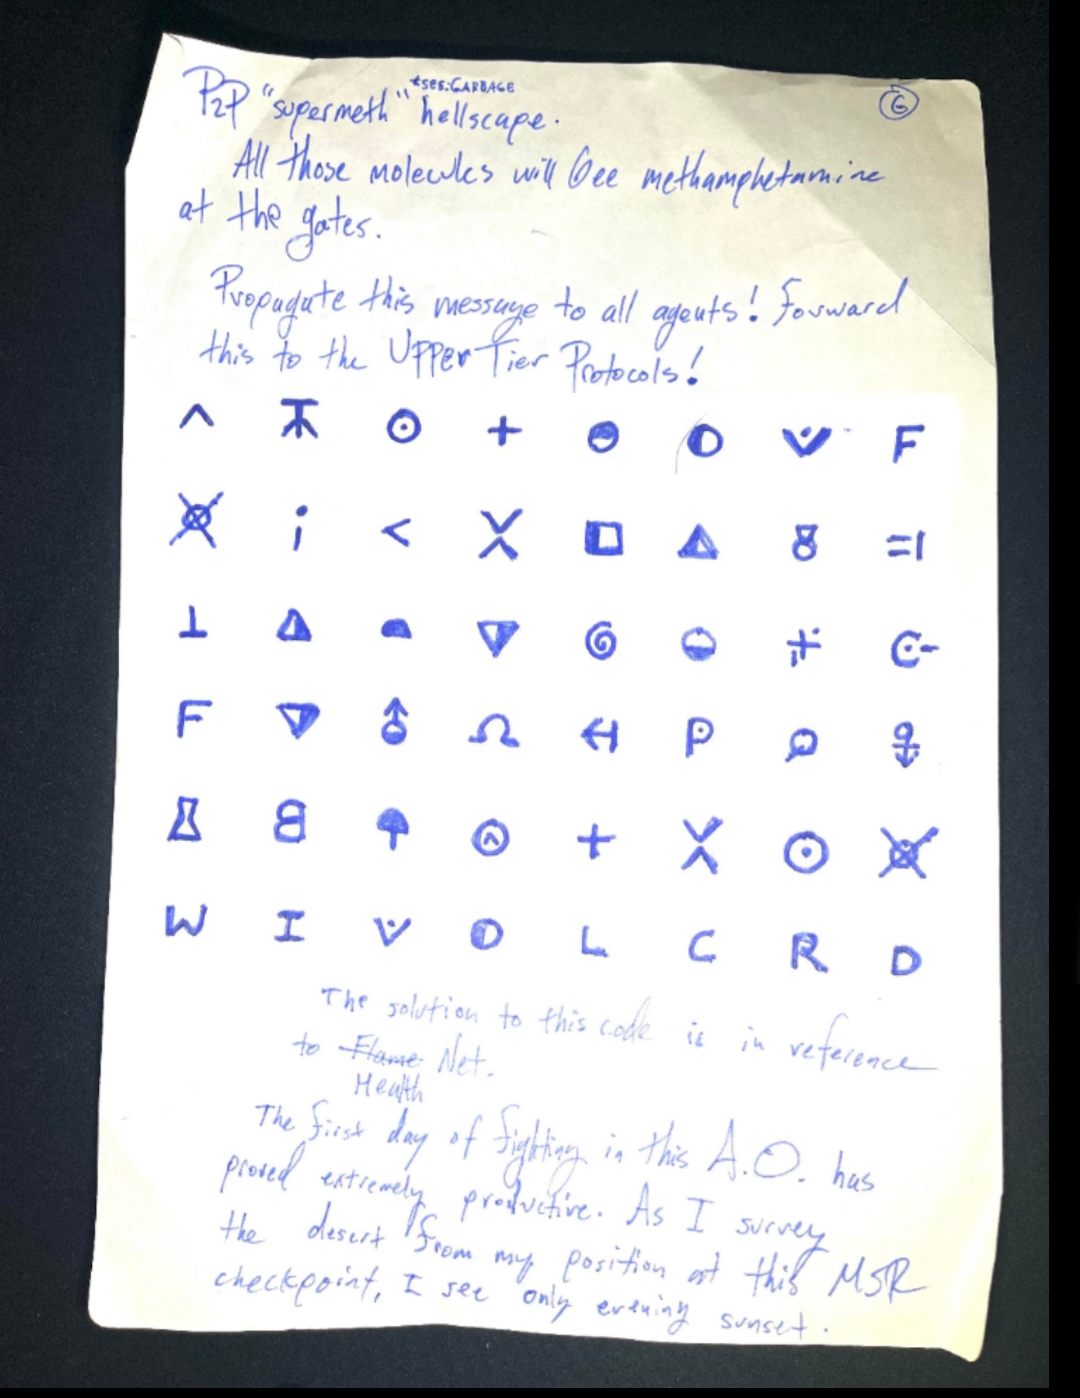 *SES: GARBAGE
P2P "supermeth" hellscape. 6
All those molecules will bee methamphetamine
at the gates.
Propagate this message to all agents! Forward
this to the Upper Tier Protocols!
F
=I
F
P
+ 
W I L C R D
The solution to this code is in reference
to Flame Net.
Health
The first day of fighting in this A.O. has
proved extremely productive. As I survey
the desert from my position at this MSR
checkpoint, I see only evening sunset.